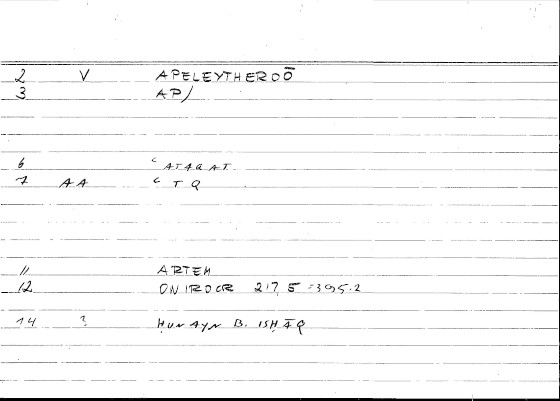 2 V APELEYTHEROŌ
3 AP/
6 ʿATAQAT
7 AA ʿTQ
11 ARTEM
12 ONIROCR 217, 5 = 395.2
14 3 ḤUNAYN B. ISḤĀQ